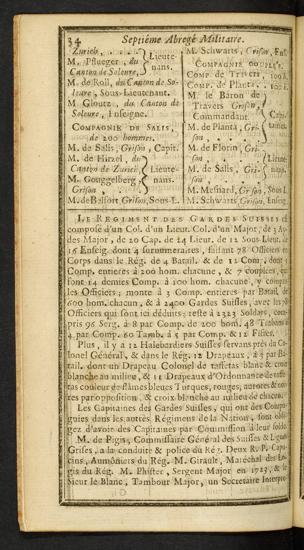 34 Septiéme Abregé Militaire.
Zurich,
M. Pflueger, du
Canton de Soleure,
Lieute-
nans.
M. de Roll, du Canton de So-
leure, Sous-Lieutenant.
M. Gloutz, du Canton de
Soleure, Enseigne.
COMPAGNIE DE SALIS,
de 200 hommes.
M. de Salis, Grison, Capit.
M. de Hirzel, du
Canton de Zurich,
M. Gouggelberg
Grison,
Lieute-
nans.
M. de Belloit, Grison, Sous-L.
M. Schwarts, Grison, Ens.
COMPAGNIE COUPLÉE.
COMP. DE TRAVERS, 100 h.
COMP. de Planta, 100 h.
M. le Baron de
Travers Grison,
Commandant.
M. de Planta, Gri-
son,
Capi-
tanes.
M. de Florin, Gri-
son,
M. de Salis, Gri-
son,
Lieute-
nans.
M. Mesnard, Grison, Sous L.
M. Schwarts, Grison, Enseig.
LE REGIMENT DES GARDES SUISSES est
composé d'un Col. d'un Lieut. Col. d'un Major, de 3 Ay-
des Major, de 20 Cap. de 24 Lieut. de 12 Sous-Lieut.
16 Enseig. dont 4 surnumeraires, faisant 78 Officiers en
Corps dans le Rég. de 4 Batail. & de 12 Com. dont
Comp. entieres à 200 hom. chacune, & 7 couplées, qui
font 14 demies Comp. à 100 hom. chacune, y compris
les Officiers; monte à 3 Comp. entieres par Batail. de
600 hom. chacun, & à 2400 Gardes Suisses, avec les 78
Officiers qui sont ici déduits; reste à 2323 Soldats, com-
pris 96 Serg. à 8 par Comp. de 200 hom. 48 Tambours
4 par Comp. 60 Tamb. à 5 par Comp. & 12 Fifres.
Plus, il y a 12 Haleberdiers Suisses servans près du Co-
lonel Général, & dans le Rég. 12 Drapeaux, à 3 par Ba-
tail. dont un Drapeau Colonel de taffetas blanc & croix
blanche au milieu, & 11 Drapeaux d'Ordonnance de taffe-
tas couleur de flâmes bleues Turques, rouges, aurores & noi-
res par opposition, & croix blanche au milieu de chacun.
Les Capitaines des Gardes Suisses, qui ont des Compa-
gnies dans les autres Régimens de la Nation, sont obli-
gez d'avoir des Capitaines par Commission à leur solde.
M. de Pigis, Commissaire Général des Suisses & Ligues
Grises, a la conduite & police du Rég. Deux R. P. Capu-
cins, Aumôniers du Rég. M. Girault, Maréchal des Lo-
gis du Rég. M. Phister, Sergent Major en 1725, & le
Sieur le Blanc, Tambour Major, un Secretaire Interpre-